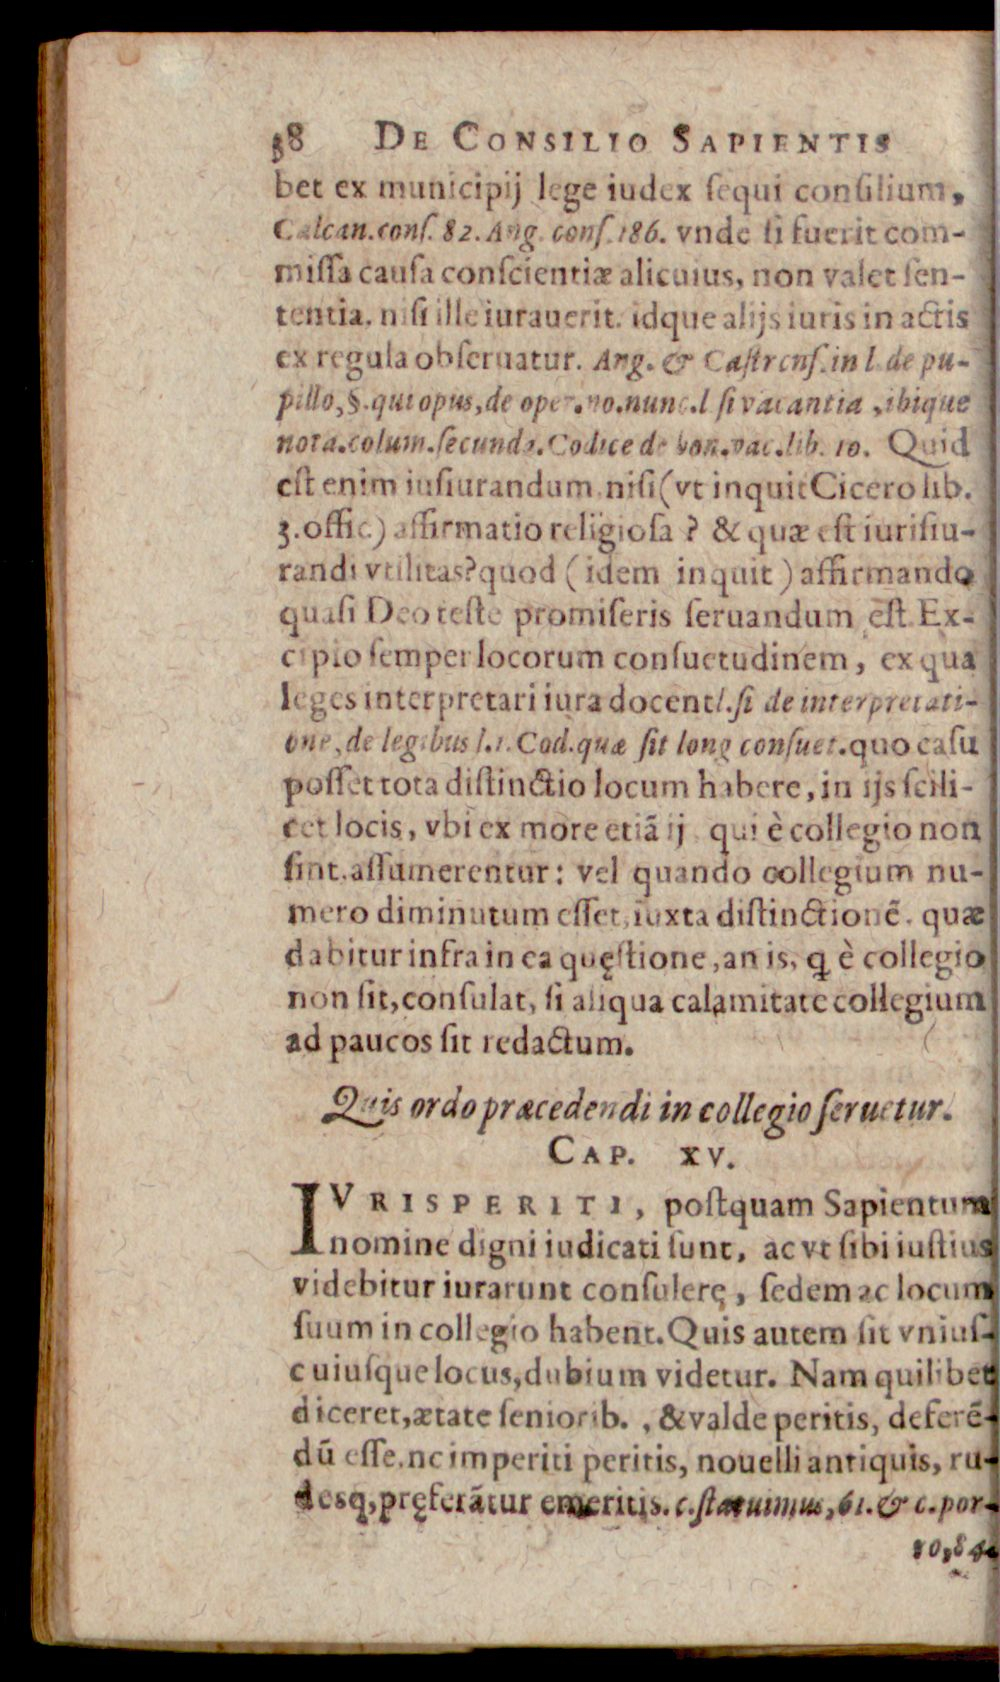 38 DE CONSILIO SAPIENTIS
bet ex municipij lege iudex ſequi conſilium,
Calcan.conſ. 82. Ang. conſ. 186. vnde ſi fuerit com-
miſſa cauſa conſcientiæ alicuius, non valet ſen-
tentia, niſi ille iurauerit. idque alijs iuris in actis
ex regula obſeruatur. Ang. & Caſtrenſ. in l. de pu-
pillo, §. qui opus, de oper. no. nunc. l ſi vacantia, ibique
nota. colum. ſecunda. Codice de bon. vac. lib. 10. Quid
eſt enim iuſiurandum niſi (vt inquit Cicero lib.
3. offic.) affirmatio religioſa ? & quæ eſt iuriſiu-
randi vtilitas? quod (idem inquit) affirmando
quaſi Deo teſte promiſeris ſeruandum eſt. Ex-
cipio ſemper locorum conſuetudinem, ex qua
leges interpretari iura docent l. ſi de interpretati-
one, de legibus l. 1. Cod. quæ ſit long conſuet. quo caſu
poſſet tota diſtinctio locum habere, in ijs ſcili-
cet locis, vbi ex more etiā ij qui è collegio non
ſint. aſſumerentur: vel quando collegium nu-
mero diminutum eſſet, iuxta diſtinctionē. quæ
dabitur infra in ea quęſtione, an is, ꝗ è collegio
non ſit, conſulat, ſi aliqua calamitate collegium
ad paucos ſit redactum.
Quis ordo præcedendi in collegio ſeruetur.
CAP. XV.
IVRISPERITI, poſtquam Sapientum
nomine digni iudicati ſunt, ac vt ſibi iuſtius
videbitur iurarunt conſulerę, ſedem ac locum
ſuum in collegio habent. Quis autem ſit vniuſ-
cuiuſque locus, dubium videtur. Nam quilibet
diceret, ætate ſeniorib. , & valde peritis, deferē-
dū eſſe. ne imperiti peritis, nouelli antiquis, ru-
desq, pręferātur emeritis. c. ſtatuimus, 61. & c. por-
ro, 84.